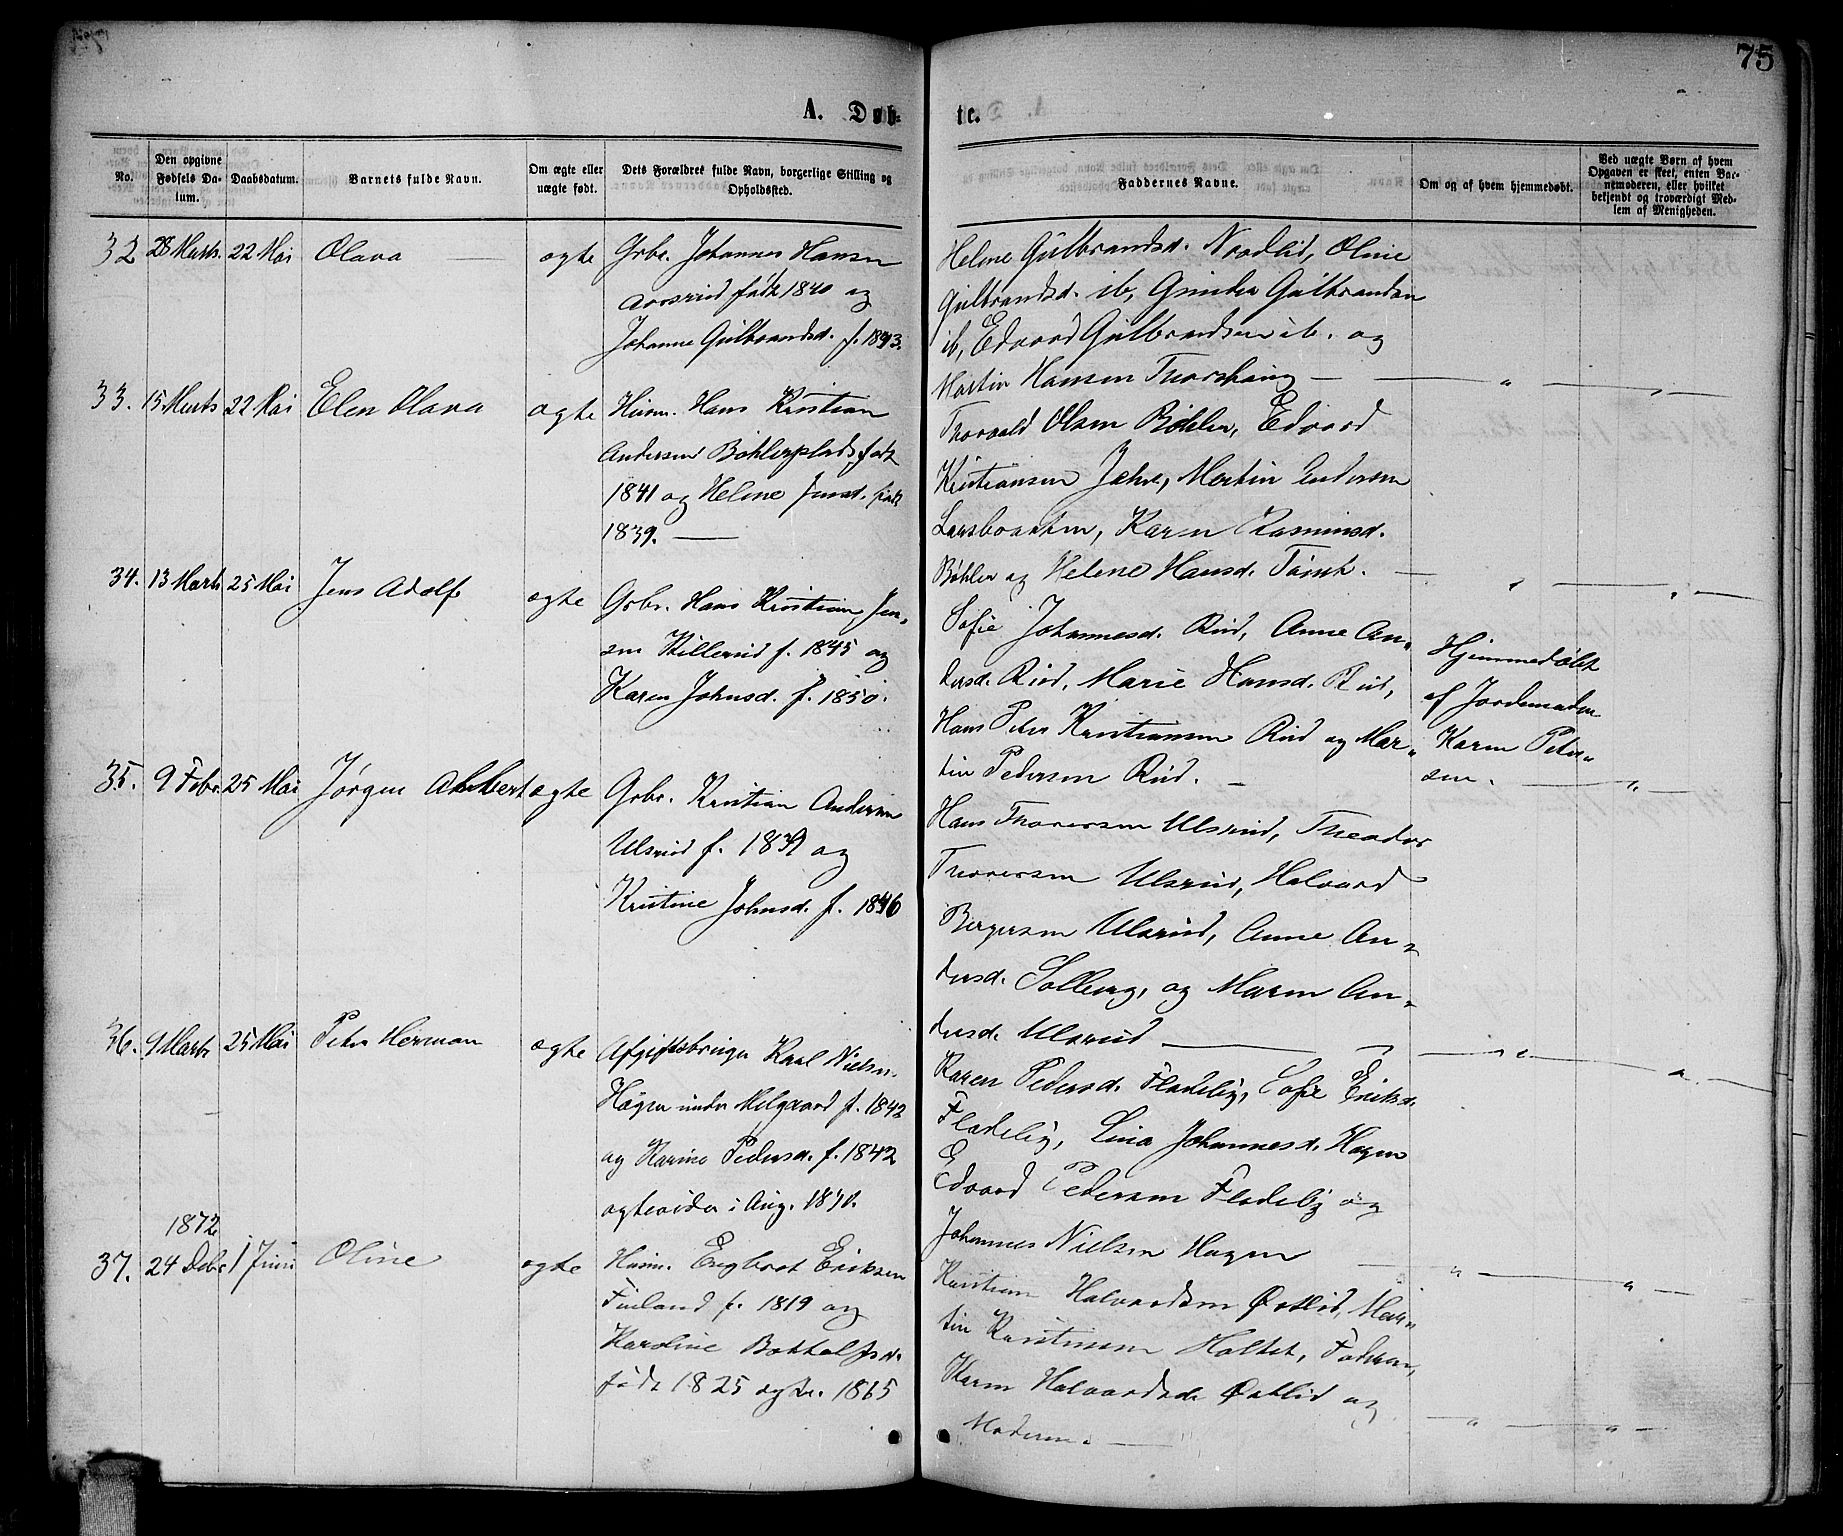 75
A. Døb-
te.
No.
Den opgivne
Fødsels Da-
tum.
Daabsdatum.
Barnets fulde Navn.
Om ægte eller
uægte født.
Dets Forældres fulde Navn, borgerlige Stilling og
Opholdssted.
Faddernes Navne.
Om og af hvem hjemmedøbt.
Ved uægte Børn af hvem
Opgaven er skeet, enten Bar-
nemoderen, eller hvilket
bekjendt og troværdigt Med-
lem af Menigheden.
32 28 Marts. 22 Mai Olava ægte
Grbr. Johannes Hansen
født 1840 og
Johanne Gulbrandsd. f. 1843.
Helene Gulbrandsd. Nordlid, Oline
Gulbrandsd. ib, Gulbrandsen
ib, Edvard Gulbrandsen ib. og
Martin Hansen Thorshaug
33. 15 Marts 22 Mai Elen Olava ægte
Husm. Hans Kristian
Andersen Böhlerplads, født
1841 og Helene Jensd. født
1839.
Thorvald Olsen Böhler, Edvard
Kristiansen Jahr, Martin Andersen
Larsbraaten, Karen Rasmusd.
Böhler og Helene Hansd.
34. 13 Marts 25 Mai Jens Adolf ægte
Grbr. Hans Kristian Jen-
sen Killerud f. 1845 og
Karen Johnsd. f. 1850.
Sofie Johannesd. Rud, Anne An-
dersd. Rud, Marie Hansd. Rud,
Hans Peter Kristiansen Rud og Mar-
tin Pedersen Rud.
Hjemmedøbt
af Jordemoder
Karen Peter-
sen.
35. 9 Febr. 25 Mai Jørgen Albert ægte
Grbr. Kristian Andersen
Ulsrud f. 1839 og
Kristine Johnsd. f. 1846
Hans Thoresen Ulsrud, Theodor
Thoresen Ulsrud, Halvard
Bergersen Ulsrud, Anne An-
dersd. Solberg, og Maren An-
dersd. Ulsrud
36. 9 Marts 25 Mai Peter Herman ægte
Afgiftsbruger Karl Nielsen
Hagen under Melgaard f. 1842
og Karine Pedersd. f. 1842
ægteviede i Aug. 1870.
Karen Pedersd. Fladeby, Sofie Eriksd.
Fladeby, Lina Johannesd. Hagen
Edvard Pedersen Fladeby og
Johannes Nielsen Hagen
1872
37. 24 Debr 1 Juni Oline ægte
Husm. Engbret Eriksen
Finland f. 1819 og
Karoline Bottolfsd.
født 1825 ægtev. 1865
Kristian Halvardsen Østlid, Mar-
tin Kristiansen Holtet, Faderen,
Karen Halvardsd. Østlid og
Moderen.